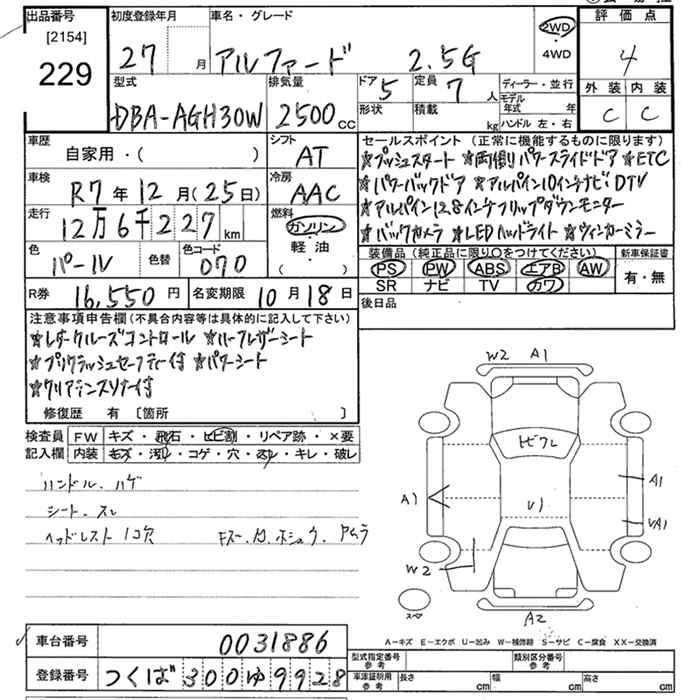 出品番号
[2154]
229
初度登録年月
27 月
車名・グレード
アルファード 2.5G
2WD
4WD
評価点
4
外装 内装
C C
型式
DBA-AGH30W
排気量
2500 cc
ドア 5
形状
定員 7 人
積載 kg
ディーラー・並行
モデル年式 年
ハンドル 左・右
車歴
自家用・( )
シフト
AT
車検
R7年12月(25日)
冷房
AAC
走行
12万6千227km
燃料
ガソリン
軽油
( )
色
パール
色替
色コード
070
R券
16,550円
名変期限
10月18日
セールスポイント (正常に機能するものに限ります)
★プッシュスタート ★両側パワースライドドア ★ETC
★パワーバックドア ★アルパイン10インチナビ・DTV
★アルパイン12.8インチフリップダウンモニター
★バックカメラ ★LEDヘッドライト ★ウィンカーミラー
装備品 (純正品に限り○をつけてください)
PS PW ABS エアB AW
SR ナビ TV カワ
新車保証書
有・無
後日品
注意事項申告欄(不具合内容等は具体的に記入して下さい)
★レダークルーズコントロール ★ハーフレザーシート
★プリクラッシュセーフティー付 ★パワーシート
★クリアランスソナー付
修復歴 有 〔箇所 〕
検査員
記入欄
FW キズ・飛石・ヒビ割・リペア跡・×要
内装 キズ・汚れ・コゲ・穴・スレ・キレ・破レ
ハンドル.ハゲ
シート.スレ
ヘッドレスト1コ穴
W2 A1
ヒビワレ
A1
A1
V1
UA1
W2
A2
スペア
A-キズ E-エクボ U-凹み W-補修跡 S-サビ C-腐食 XX-交換済
車台番号
0031886
登録番号
つくば300ゆ9928
型式指定番号
参考
類別区分番号
参考
車庫証明用
参考
長さ cm 幅 cm 高さ cm